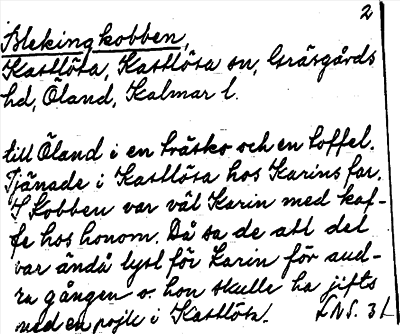 2
Blekingkobben,
Kastlösa, Kastlösa sn, Gräsgårds
hd, Öland, Kalmar l.
till Öland i en träsko och en toffel.
Tjänade i Kastlösa hos Karins far.
I kobben var väl Karin med kaf-
fe hos honom. Då sa de att det
var ändå lyst för Karin för and-
ra gången o. hon skulle ha jifts
med en pojk i Kastlösa!